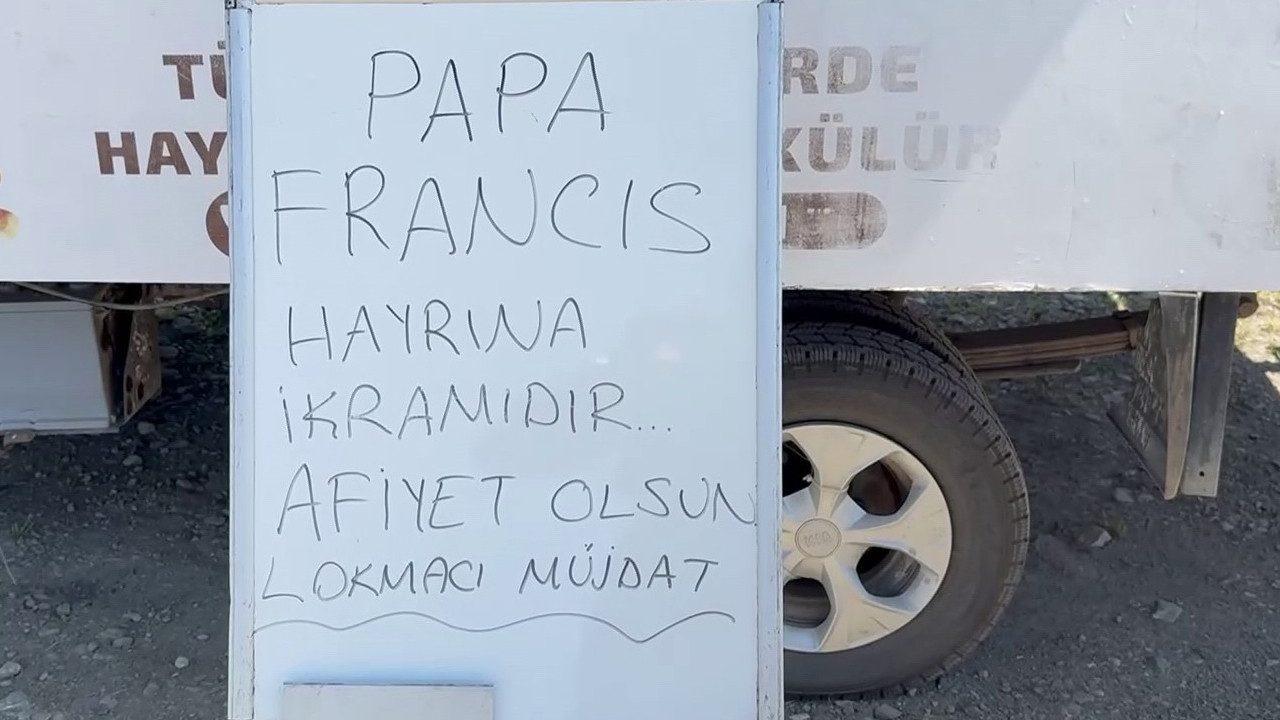 PAPA
FRANCIS
HAYRINA
İKRAMIDIR...
AFİYET OLSUN
LOKMACI MÜJDAT
TÜ
RDE
HAY
KÜLÜR